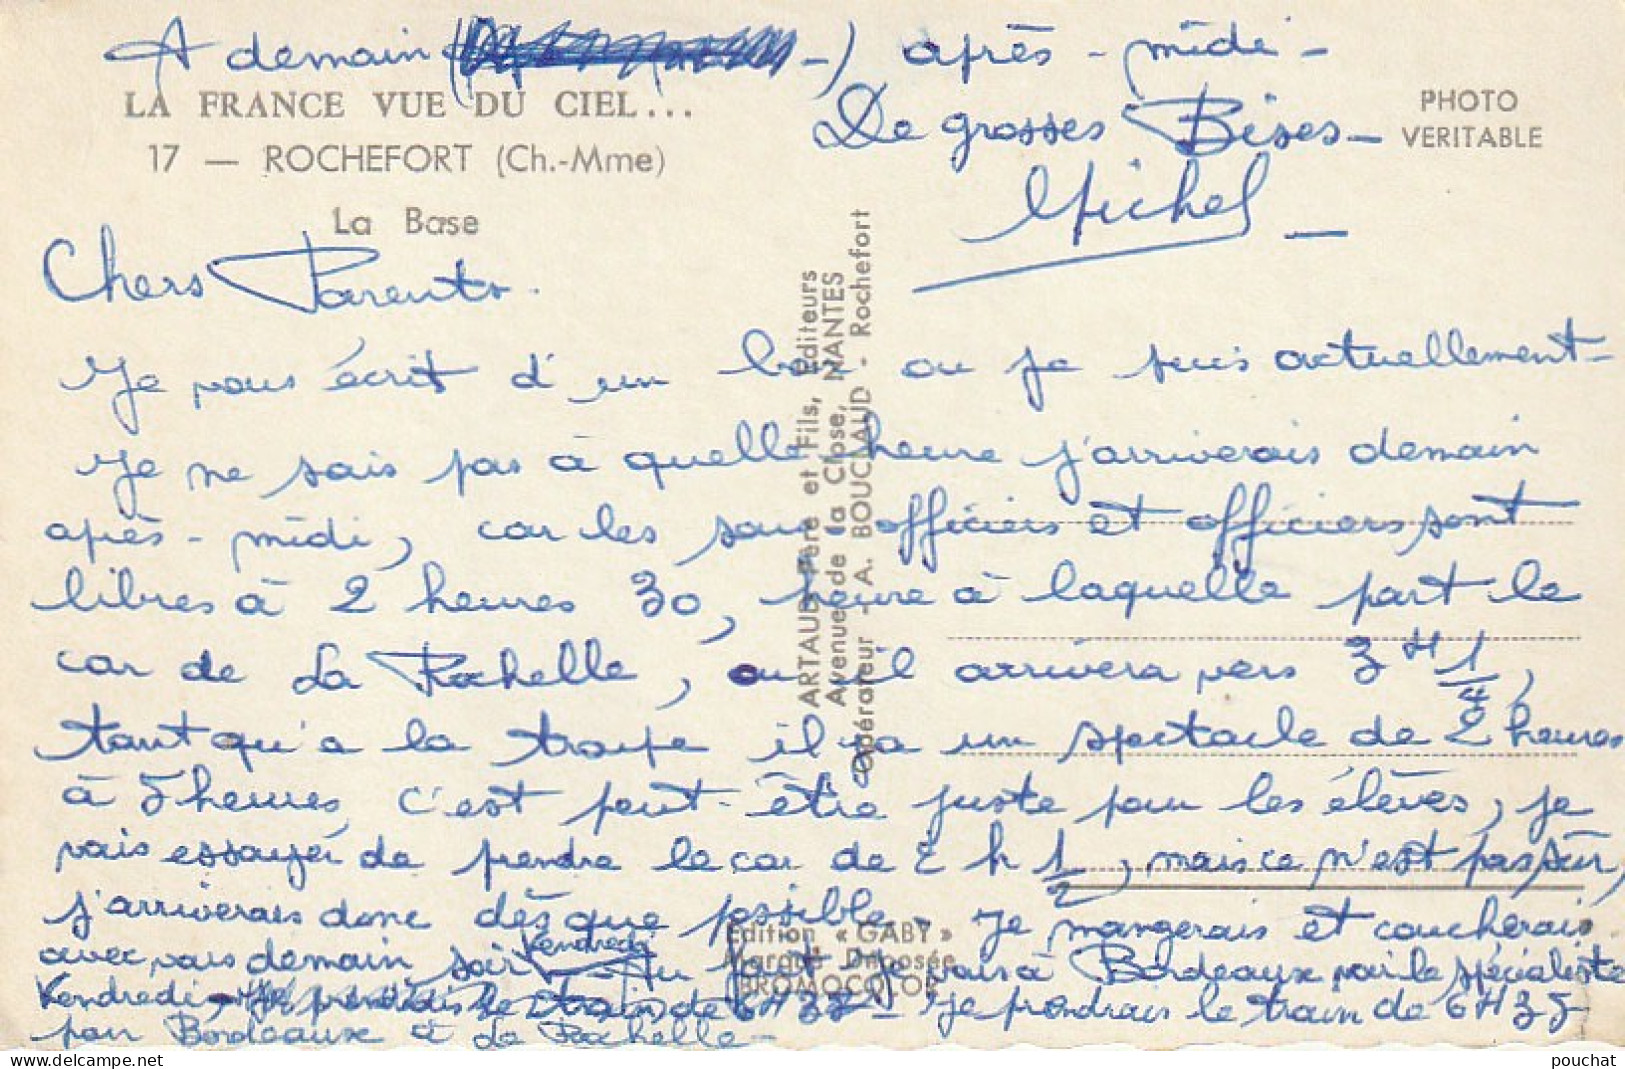 A demain après-midi -
LA FRANCE VUE DU CIEL...
17 — ROCHEFORT (Ch.-Mme)
La Base
De grosses Bises -
Michel
PHOTO
VERITABLE
Chers Parents.
Je vous écrit d'un bar ou je suis actuellement -
Je ne sais pas à quelle heure j'arriverais demain
après-midi, car les sous officiers et officiers sont
libres à 2 heures 30, heure à laquelle part le
car de La Rochelle, ou il arrivera vers 3 H 1/4,
tant qu'a la troupe il y a un spectacle de 2 heures
à 5 heures, c'est peut-être juste pour les élèves, je
vais essayer de prendre le car de 2 h 1/2, mais ce n'est pas sûr,
j'arriverais donc dès que possible. Je mangerais et coucherais
avec vous demain soir Vendredi je vais à Bordeaux voir le spécialiste
Vendredi, je prendrais le train de 6H35 - Je prendrais le train de 6H35
pour Bordeaux à La Rochelle -
ARTAUD Père et Fils, Editeurs
Avenue de la Close, NANTES
Opérateur - A. BOUCLAUD - Rochefort
Edition « GABY »
Marque Déposée
BROMOCOLOR
delcampe.net
pouchat